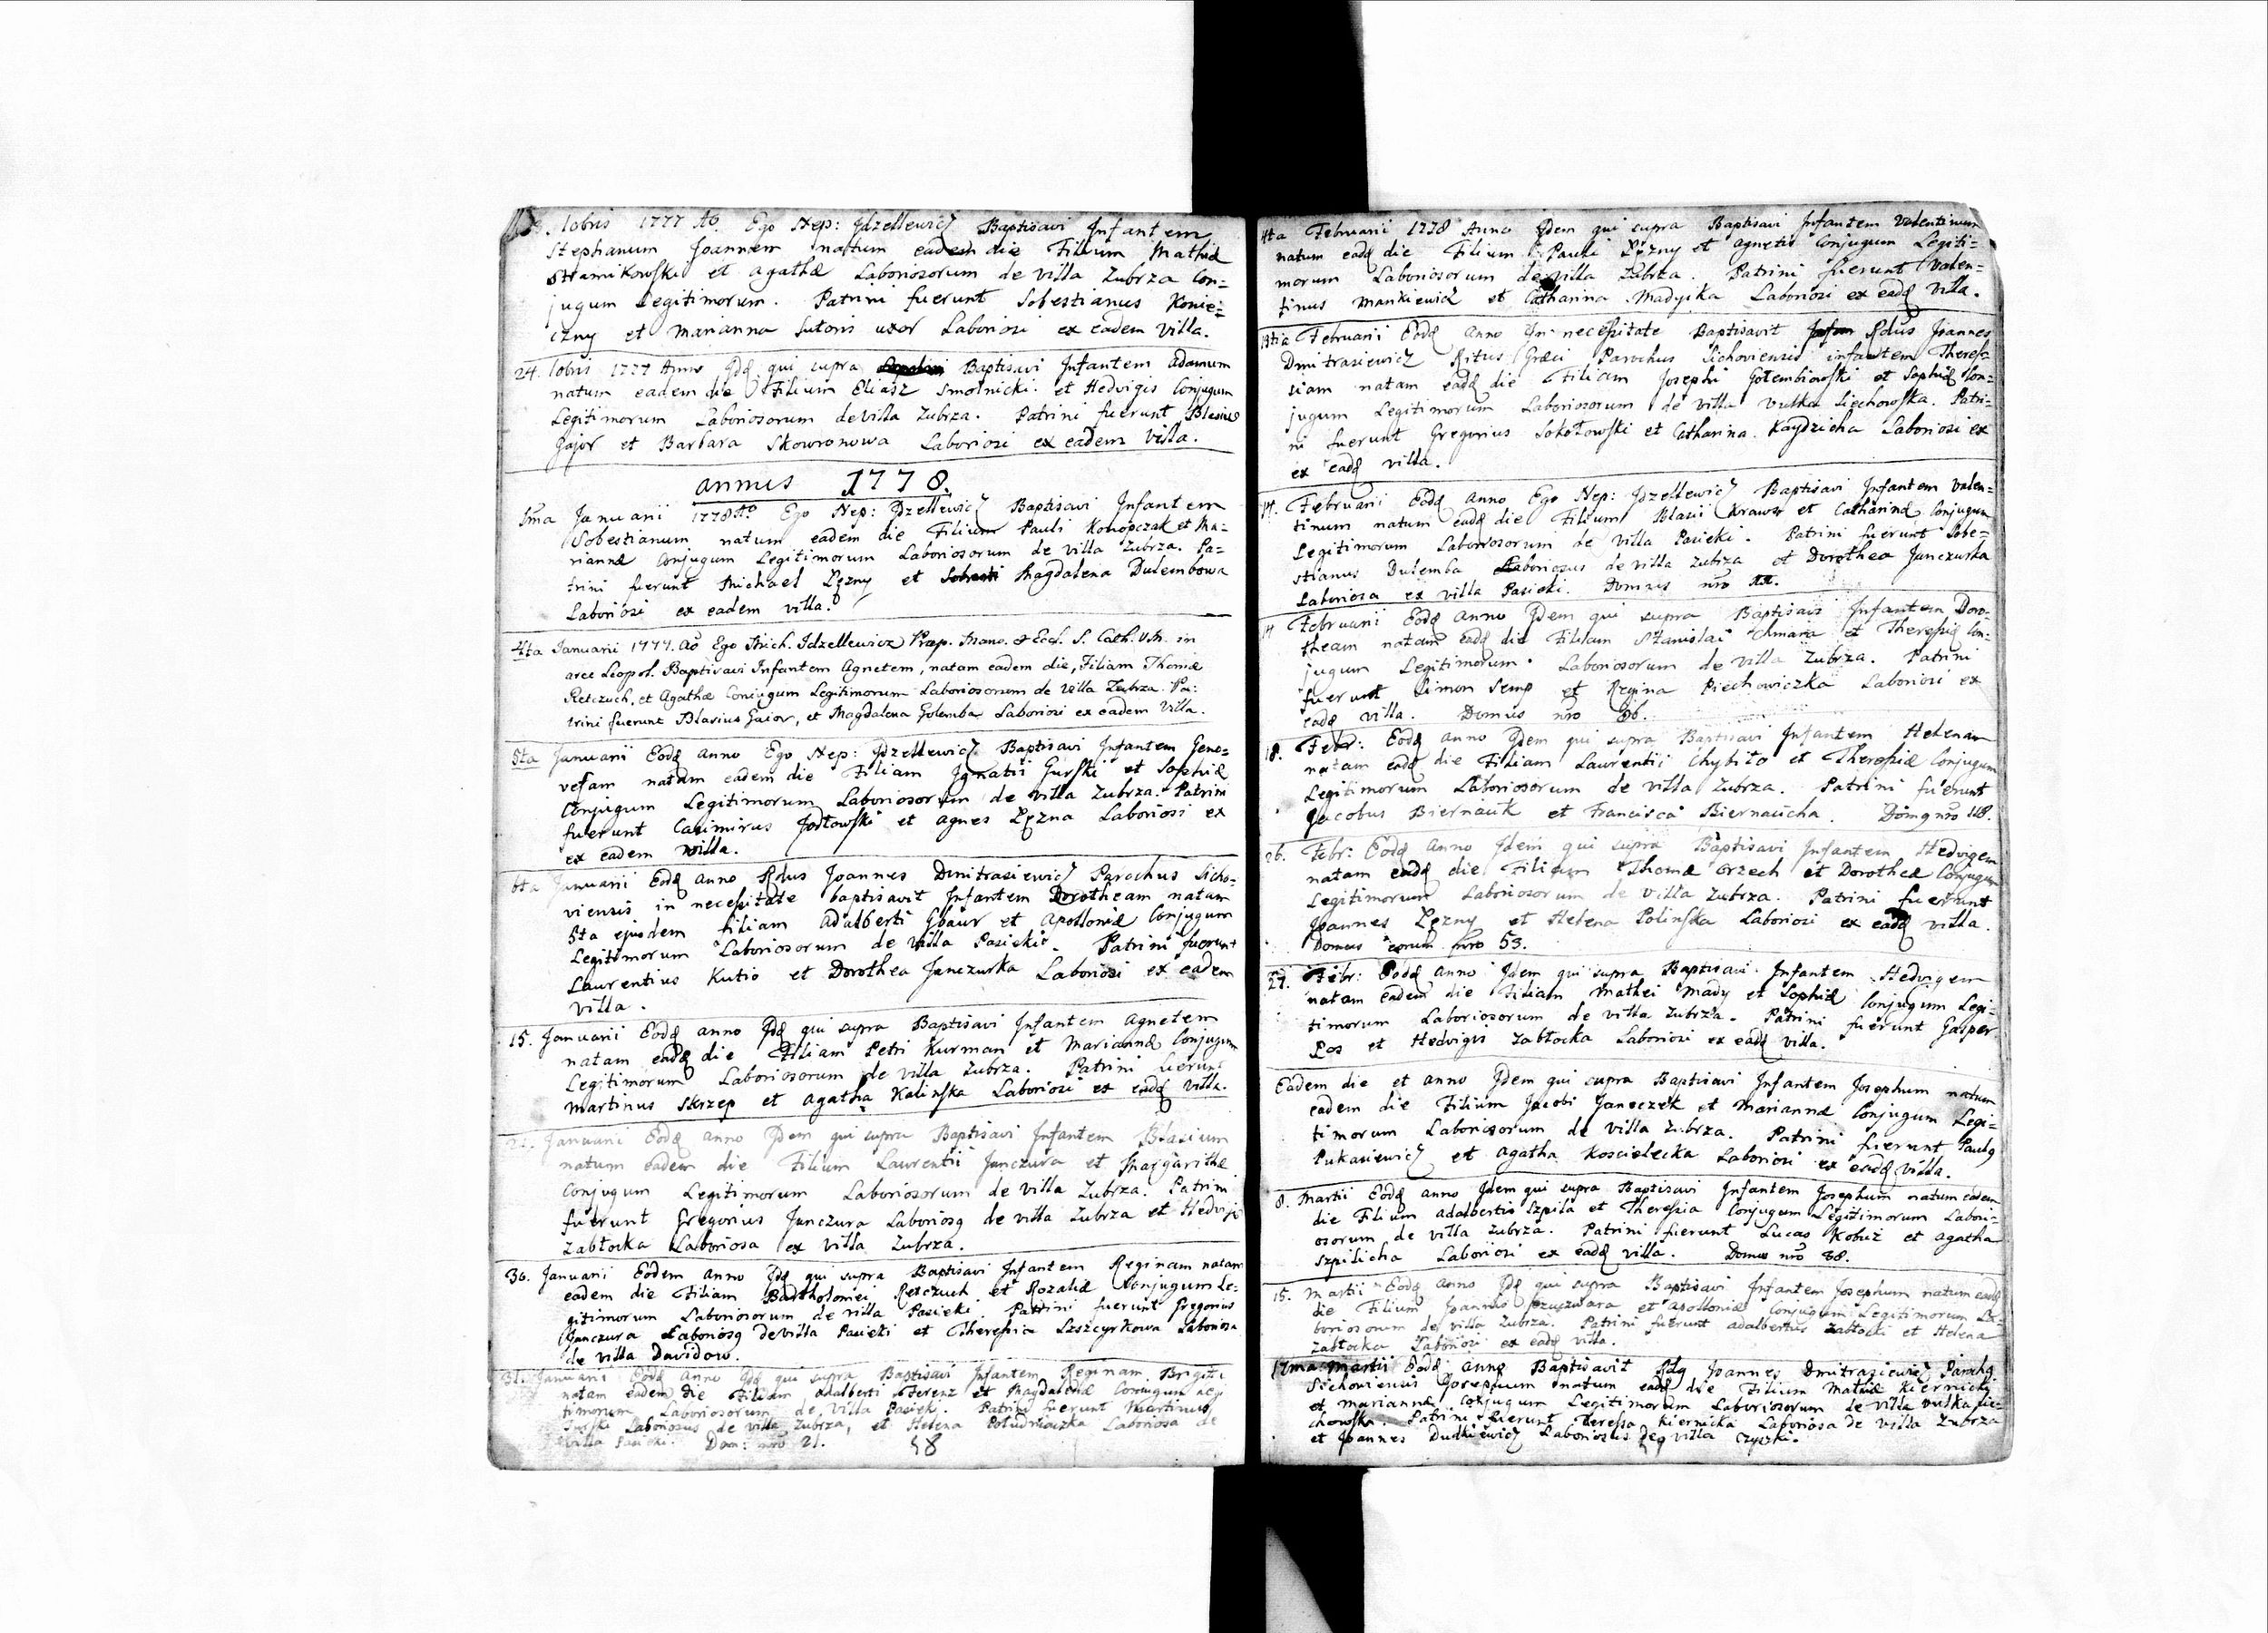 Xbris 1777 Ao. Ego Nep: Jdzellewicz Baptisavi Infantem
Stephanum Joannem natum eadem die Filium Mathiæ
Stamikowski et Agathæ Laboriosorum de villa Zubrza Con=
jugum Legitimorum. Patrini fuerunt Sobestianus Konie=
czny et Marianna Sutoris uxor Laboriosi ex eadem villa.
24. Xbris 1777 Anno Jdē qui supra Baptisavi Infantem Adamum
natum eadem die Filium Eliasz Smolnicki et Hedvigis Conjugum
Legitimorum Laboriosorum de villa Zubrza. Patrini fuerunt Blasius
Gajor et Barbara Skowronowa Laboriosi ex eadem villa.
annus 1778.
1ma Januarii 1778 Ao Ego Nep: Jdzellewicz Baptisavi Infantem
Sobestianum natum eadem die Filium Pauli Konopczak et Ma=
riannæ Conjugum Legitimorum Laboriosorum de villa Zubrza. Pa=
trini fuerunt Michael Lęzny et Magdalena Dulembowa
Laboriosi ex eadem villa.
4ta Januarii 1777. Ao Ego Mich. Idzellewicz Præp. Mans. & Eccl. S. Cath. V.M. in
arce Leopol. Baptisavi Infantem Agnetem, natam eadem die, Filiam Thomæ
Retczuch, et Agathæ Conjugum Legitimorum Laboriosorum de villa Zubrza. Pa:
trini fuerunt Blasius Gaior, et Magdalena Golemba Laboriosi ex eadem villa.
5ta Januarii Eodē anno Ego Nep: Jdzellewicz Baptisavi Infantem Geno=
vefam natam eadem die Filiam Ignatii Gurski et Sophiæ
Conjugum Legitimorum Laboriosorum de villa Zubrza. Patrini
fuerunt Casimirus Jodłowski et Agnes Lęzna Laboriosi ex
ex eadem villa.
6ta Januarii Eodē anno Rdus Joannes Dmitrasiewicz Parochus Sicho=
viensis in necessitate baptisavit Infantem Dorotheam natam
5ta ejusdem filiam Adalberti Gbaur et Apolloniæ Conjugum
Legitimorum Laboriosorum de villa Pasieki. Patrini fuerunt
Laurentius Kutio et Dorothea Janczurka Laboriosi ex eadem
villa.
15. Januarii Eodē anno Jdē qui supra Baptisavi Infantem Agnetem
natam eadē die Filiam Petri Kurman et Mariannæ Conjugum
Legitimorum Laboriosorum de villa Zubrza. Patrini fuerunt
Martinus Skrzep et Agatha Kalinska Laboriosi ex eadē villa.
Januarii Eodē anno Jdem qui supra Baptisavi Infantem Blasium
natum eadem die Filium Laurentii Janczura et Margarithæ
Conjugum Legitimorum Laboriosorum de villa Zubrza. Patrini
fuerunt Gregorius Janczura Laborioſq de villa Zubrza et Hedvigis
Zabłocka Laboriosa ex villa Zubrza.
30. Januarii Eodem anno Jdē qui supra Baptisavi Infantem Reginam natam
eadem die Filiam Bartholomei Retczuch et Rozaliæ Conjugum Le=
gitimorum Laboriosorum de villa Pasieki. Patrini fuerunt Gregorius
Janczura Laborioſq de villa Pasieki et Theressia Lszczyrkowa Laboriosa
de villa Davidow.
31. Januarii Eodē Anno Jdē qui supra Baptisavi Infantem Reginam
natam eadem die Filiam Adalberti Ferenz et Magdalenæ Conjugum
timorum Laboriosorum de villa Pasieki. Patrini fuerunt Martinus
Laboriosus de villa Zubrza, et Helena Południaczka Laboriosa de
villa Pasieki. Dom: nro 21.
4ta Februarii 1778 Anno Jdem qui supra Baptisavi Infantem Valentinum
natum eadē die Filium Pauli Lęzny et Agnetis Conjugum Legiti=
morum Laboriosorum de villa Zubrza. Patrini fuerunt Valen=
tinus Mankiewicz et Catharina Madyika Laboriosi ex eadē villa.
13tia Februarii Eodē anno In necessitate Baptisavit Rdus Joannes
Dmitrasiewicz Ritus Græci Parochus Sichoviensis infantem Theres=
siam natam eadē die Filiam Josephi Gołembiowski et Sophiæ Con=
jugum Legitimorum Laboriosorum de villa Vulka Siechowska. Patri=
ni fuerunt Gregorius Sokołowski et Catharina Kaydzicha Laboriosi ex
ex eadē villa.
14. Februarii Eodē anno Ego Nep: Jdzellewicz Baptisavi Infantem Valen=
tinum natum eadē die Filium Blasii Krawor et Catharinæ Conjugum
Legitimorum Laboriosorum de villa Pasieki. Patrini fuerunt Sobe=
stianus Dulemba Laboriosus de villa Zubrza et Dorothea Janczurka
Laboriosa ex villa Pasieki. Domus nro
Februarii Eodē anno Jdem qui supra Baptisavi Infantem Doro=
theam natam eadē die Filiam Stanislai Chmara et Theresiæ Con=
jugum Legitimorum. Laboriosorum de villa Zubrza. Patrini
fuerunt Simon Semp et Regina Piechowiczka Laboriosi ex
eadē villa. Domus nro 86.
18. Febr: Eodē anno Jdem qui supra Baptisavi Infantem Helenam
natam eadē die Filiam Laurentii Chybiło et Theressiæ Conjugum
Legitimorum Laboriosorum de villa Zubrza. Patrini fuerunt
Jacobus Biernacik et Francisca Biernacicha. Domq nro 118.
26. Febr: Eodē anno Jdem qui supra Baptisavi Infantem Hedvigem
natam eadē die Filiam Thomæ Orzech et Dorotheæ Conjugum
Legitimorum Laboriosorum de villa Zubrza. Patrini fuerunt
Joannes Lęzny et Helena Polinska Laboriosi ex eadē villa.
Domus eorum nro 53.
27. Febr: Eodē anno Jdem qui supra Baptisavi Infantem Hedvigem
natam eadem die Filiam Mathei Mady et Sophiæ Conjugum Legi=
timorum Laboriosorum de villa Zubrza. Patrini fuerunt Gasper
Łos et Hedvigis Zabłocka Laboriosi ex eadē villa.
Eadem die et anno Jdem qui supra Baptisavi Infantem Josephum natum
eadem die Filium Jacobi Janeczek et Mariannæ Conjugum Legi=
timorum Laboriosorum de villa Zubrza. Patrini fuerunt Paulq
Łukasiewicz et Agatha Koscielecka Laboriosi ex eadē villa.
8. Martii Eodē anno Jdem qui supra Baptisavi Infantem Josephum natum eadem
die Filium Adalberti Szpila et Theressia Conjugum Legitimorum Labori=
osorum de villa Zubrza. Patrini fuerunt Lucas Kobuz et Agatha
Szpilicha Laboriosi ex eadē villa. Domus nro 88.
15. Martii Eodē anno Jdē qui supra Baptisavi Infantem Josephum natum eadē
die Filium Joannis et Apolloniæ Conjugum Legitimorum La=
boriosorum de villa Zubrza. Patrini fuerunt Adalbertus Zabłocki et Helena
Zabłocka Laboriosi ex eadē villa.
17ma Martii Eodē anno Baptisavit Rdq Joannes Dmitrasiewicz Parochq
Sichoviensis Josephum natum eadē die Filium Mathiæ Kiernicki
et Mariannæ Conjugum Legitimorum Laboriosorum de villa Vulka Sie=
chowska. Patrini fuerunt Teressa Kiernicka Laboriosa de villa Zubrza
et Joannes Dudkiewicz Laboriosus de villa Czyszki.